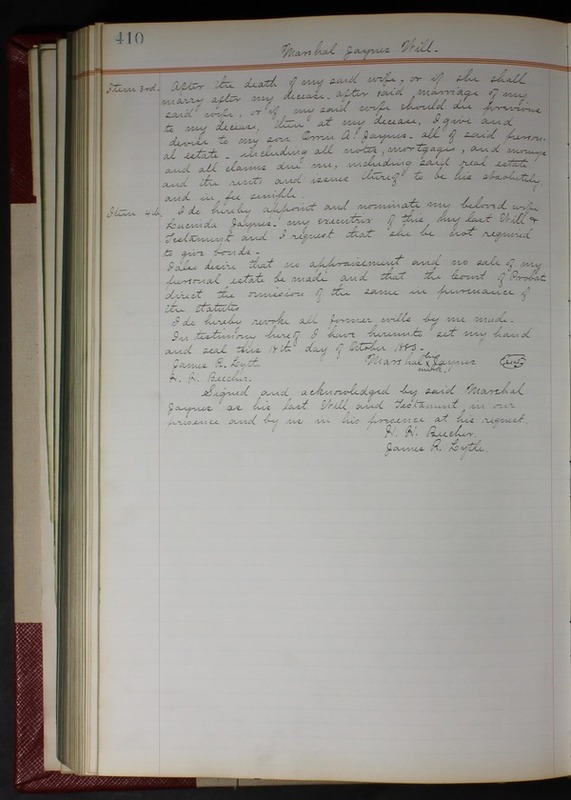 410
Marshal Jaynes Will.
Item 3rd. After the death of my said wife, or if she shall
marry after my decease after said marriage of my
said wife, or if my said wife should die previous
to my decease, then at my decease, I give and
devise to my son Orrin A. Jaynes all of said person-
al estate including all notes, mortgages, and moneys
and all claims due me, including said real estate
and the rents and issues thereof to be his absolutely
and in fee simple.
Item 4th. I do hereby appoint and nominate my beloved wife
Lucinda Jaynes my executrix of this my last Will &
Testament and I request that she be not required
to give bonds.
I also desire that no appraisement and no sale of my
personal estate be made and that the Court of Probate
direct the omission of the same in pursuance of
the statutes
I do hereby revoke all former wills by me made.
In testimony hereof I have hereunto set my hand
and seal this 18th day of October 1883.
James R. Lytle Marshal his x mark Jaynes (seal)
H. H. Beecher.
Signed and acknowledged by said Marshal
Jaynes as his last Will and Testament in our
presence and by us in his presence at his request.
H. H. Beecher.
James R. Lytle.